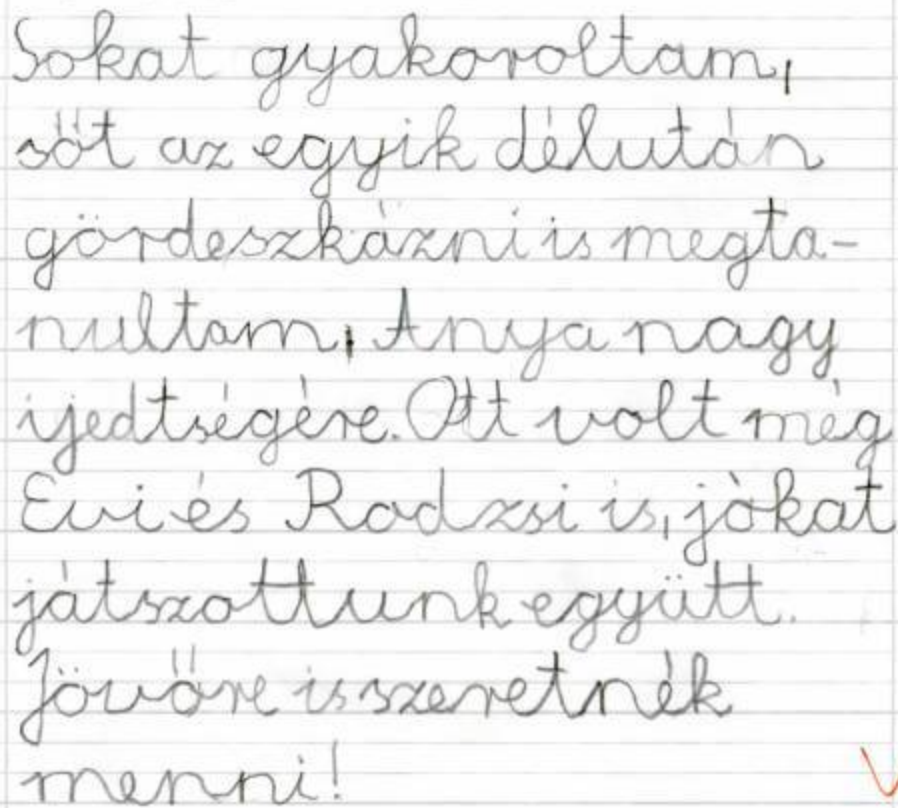 Sokat gyakoroltam,
sőt az egyik délután
gördeszkázni is megta-
nultam, Anya nagy
ijedtségére. Ott volt még
Evi és Rodzsi is, jókat
játszottunk együtt.
Jövőre is szeretnék
menni!